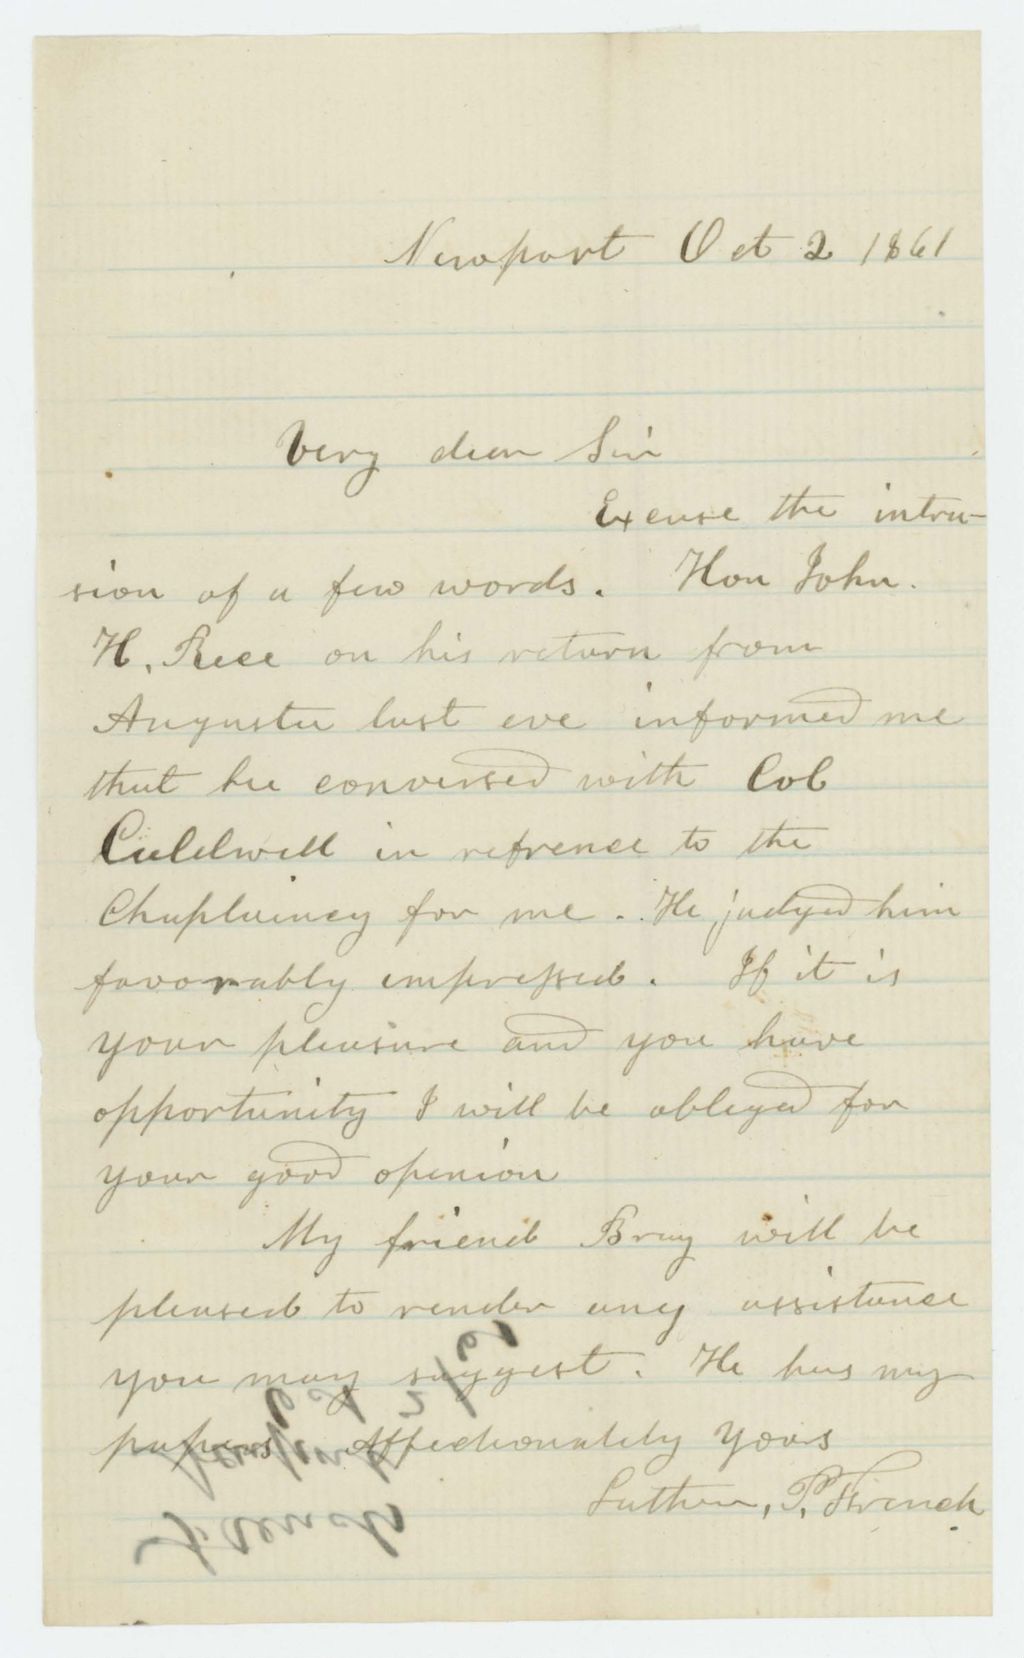 Newport Oct 2 1861
Very dear Sir
Excuse the intru-
sion of a few words. Hon John.
H. Rice on his return from
Augusta last eve informed me
that he conversed with Col
Caldwell in refrence to the
Chaplaincy for me. He judged him
favorably impressed. If it is
your pleasure and you have
opportunity I will be obliged for
your good opinion
My friend Bray will be
pleased to render any assistance
you may suggest. He has my
papers Affectionately Yours
Luther, P. French
French